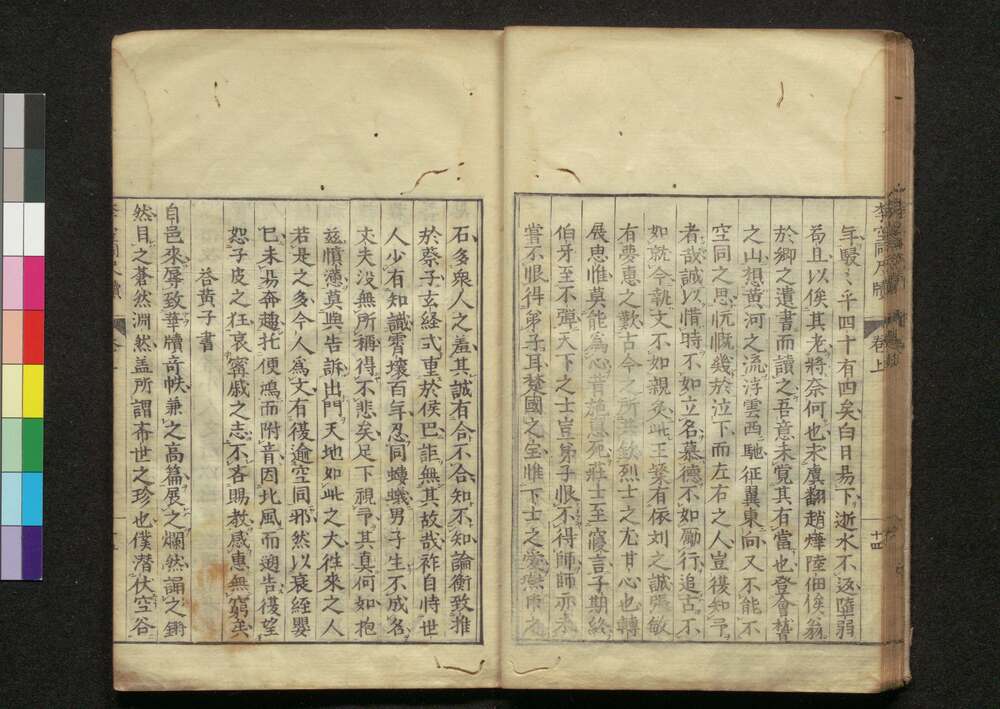 年駸〻乎四十有四矣白日易下逝水不返墮弱
苟且以俟其老將奈何也宋虞翻趙燁陸佃俟翁
於鄉之遺書而讀之吾意未覓其有當也登會稽
之山想黃河之流浮雲西馳征翼東向又不能不
空同之思忼慨幾於泣下而左右之人豈復知乎
者哉誠以惜時不如立名慕德不如勵行追古不
如就今執文不如親炙此王粲有依刘之誠張敏
有夢惠之歎古今之所共欽烈士之尤甘心也轉
展思惟莫能為心昔施惠死莊士至寢言子期終
伯牙至不彈天下之士豈弟子恨不得師師亦未
嘗不恨得弟子耳楚國之宝惟下士之愛
李空同尺牘
卷上
十四
石多衆人之羞其誠有合不合知不知論衡致推
於蔡子玄経式重於侯巴詎無其故哉祚自恃世
人少有知識霄壤百年忍同螻蟻男子生不成名
丈夫没無所稱得不悲矣足下視乎其真何如抱
茲憤懣莫與告訴出門天地如此之大徃來之人
若是之多今人為文有復逾空同邪然以衰絰嬰
巳未易奔趨托便鴻而附音因北風而遡告復望
恕子皮之狂哀寗戚之志不吝賜教感惠無窮矣
答黃子書
自邑來辱致華牘竒帙兼之高篇展之爛然誦之鏘
然目之蒼然渊然盖所謂希世之珍也僕潜伏空谷